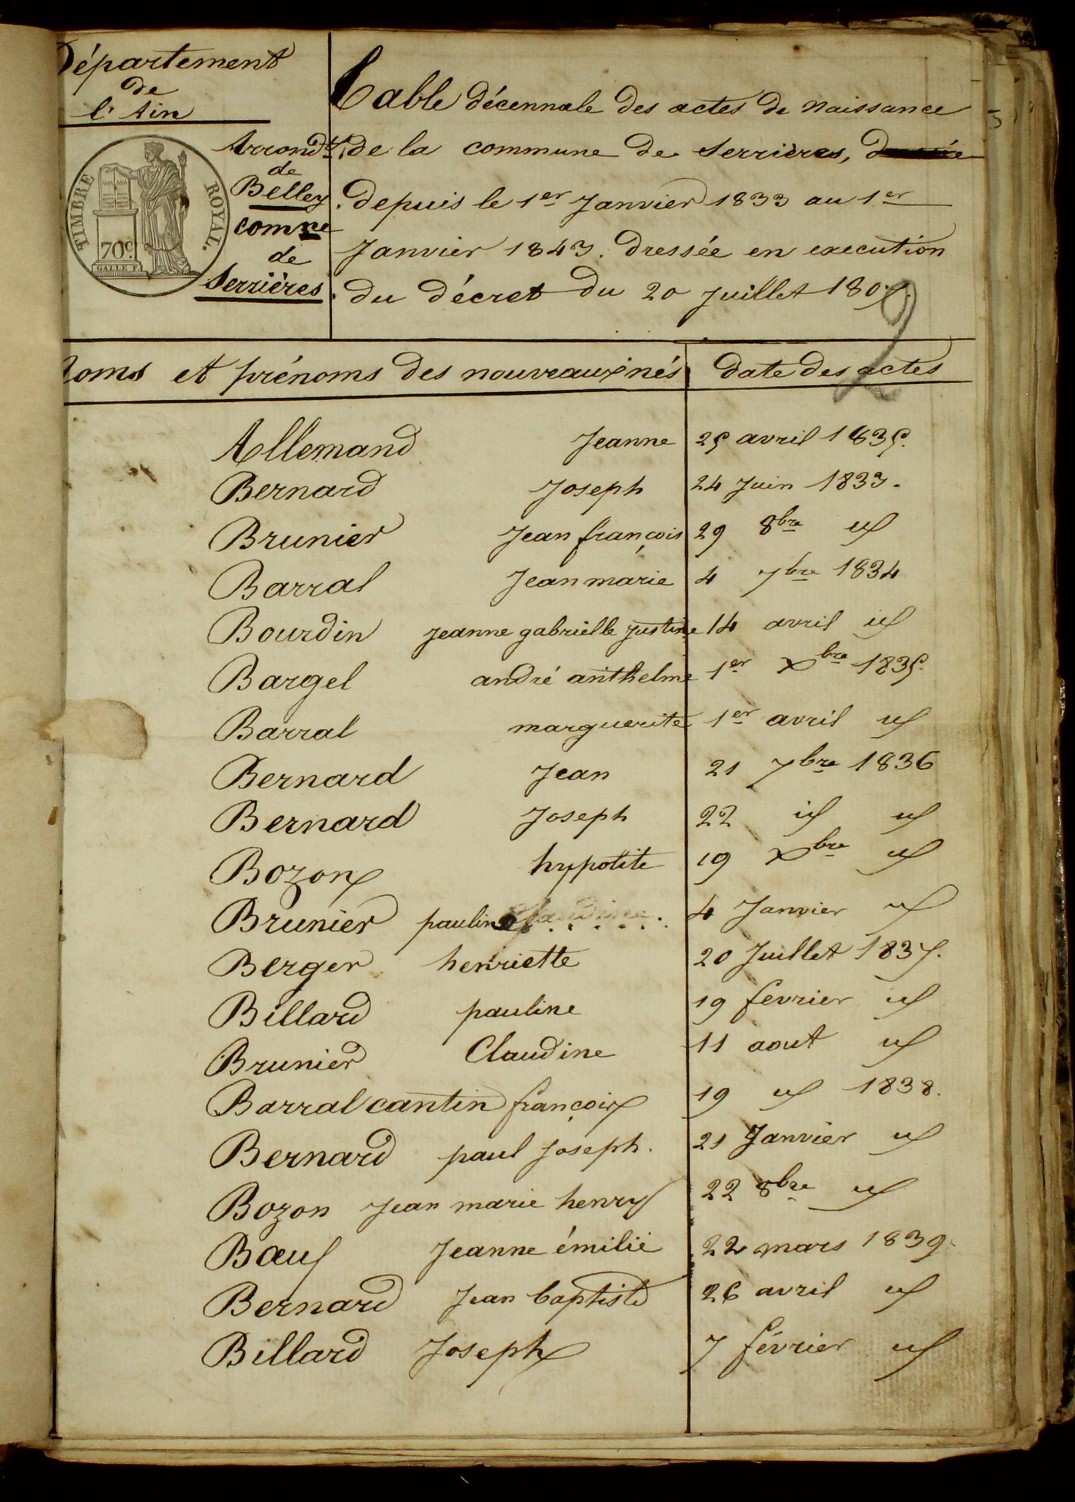 Département
de
l'Ain
Arrondt
de
Belley
comne
de
Serrières
TIMBRE ROYAL.
70c.
Table décennale des actes de naissance
de la commune de Serrières,
depuis le 1er Janvier 1833 au 1er
Janvier 1843. dressée en execution
du décret du 20 juillet 1807.
2
noms et prénoms des nouveaux nés date des actes
Allemand Jeanne 25 avril 1835.
Bernard Joseph 24 Juin 1833.
Brunier Jean françois 29 8bre id
Barral Jean marie 4 7bre 1834
Bourdin jeanne gabrielle justine 14 avril id
Bargel andré anthelme 1er Xbre 1835.
Barral marguerite 1er avril id
Bernard Jean 21 7bre 1836
Bernard Joseph 22 id id
Bozon hypolite 19 Xbre id
Brunier pauline 4 Janvier id
Berger henriette 20 Juillet 1837.
Billard pauline 19 fevrier id
Brunier Claudine 11 aout id
Barral cantin françois 19 id 1838.
Bernard paul Joseph. 21 Janvier id
Bozon Jean marie henry 22 8bre id
Bœuf Jeanne émilie 22 mars 1839.
Bernard Jean baptiste 26 avril id
Billard Joseph 7 février id